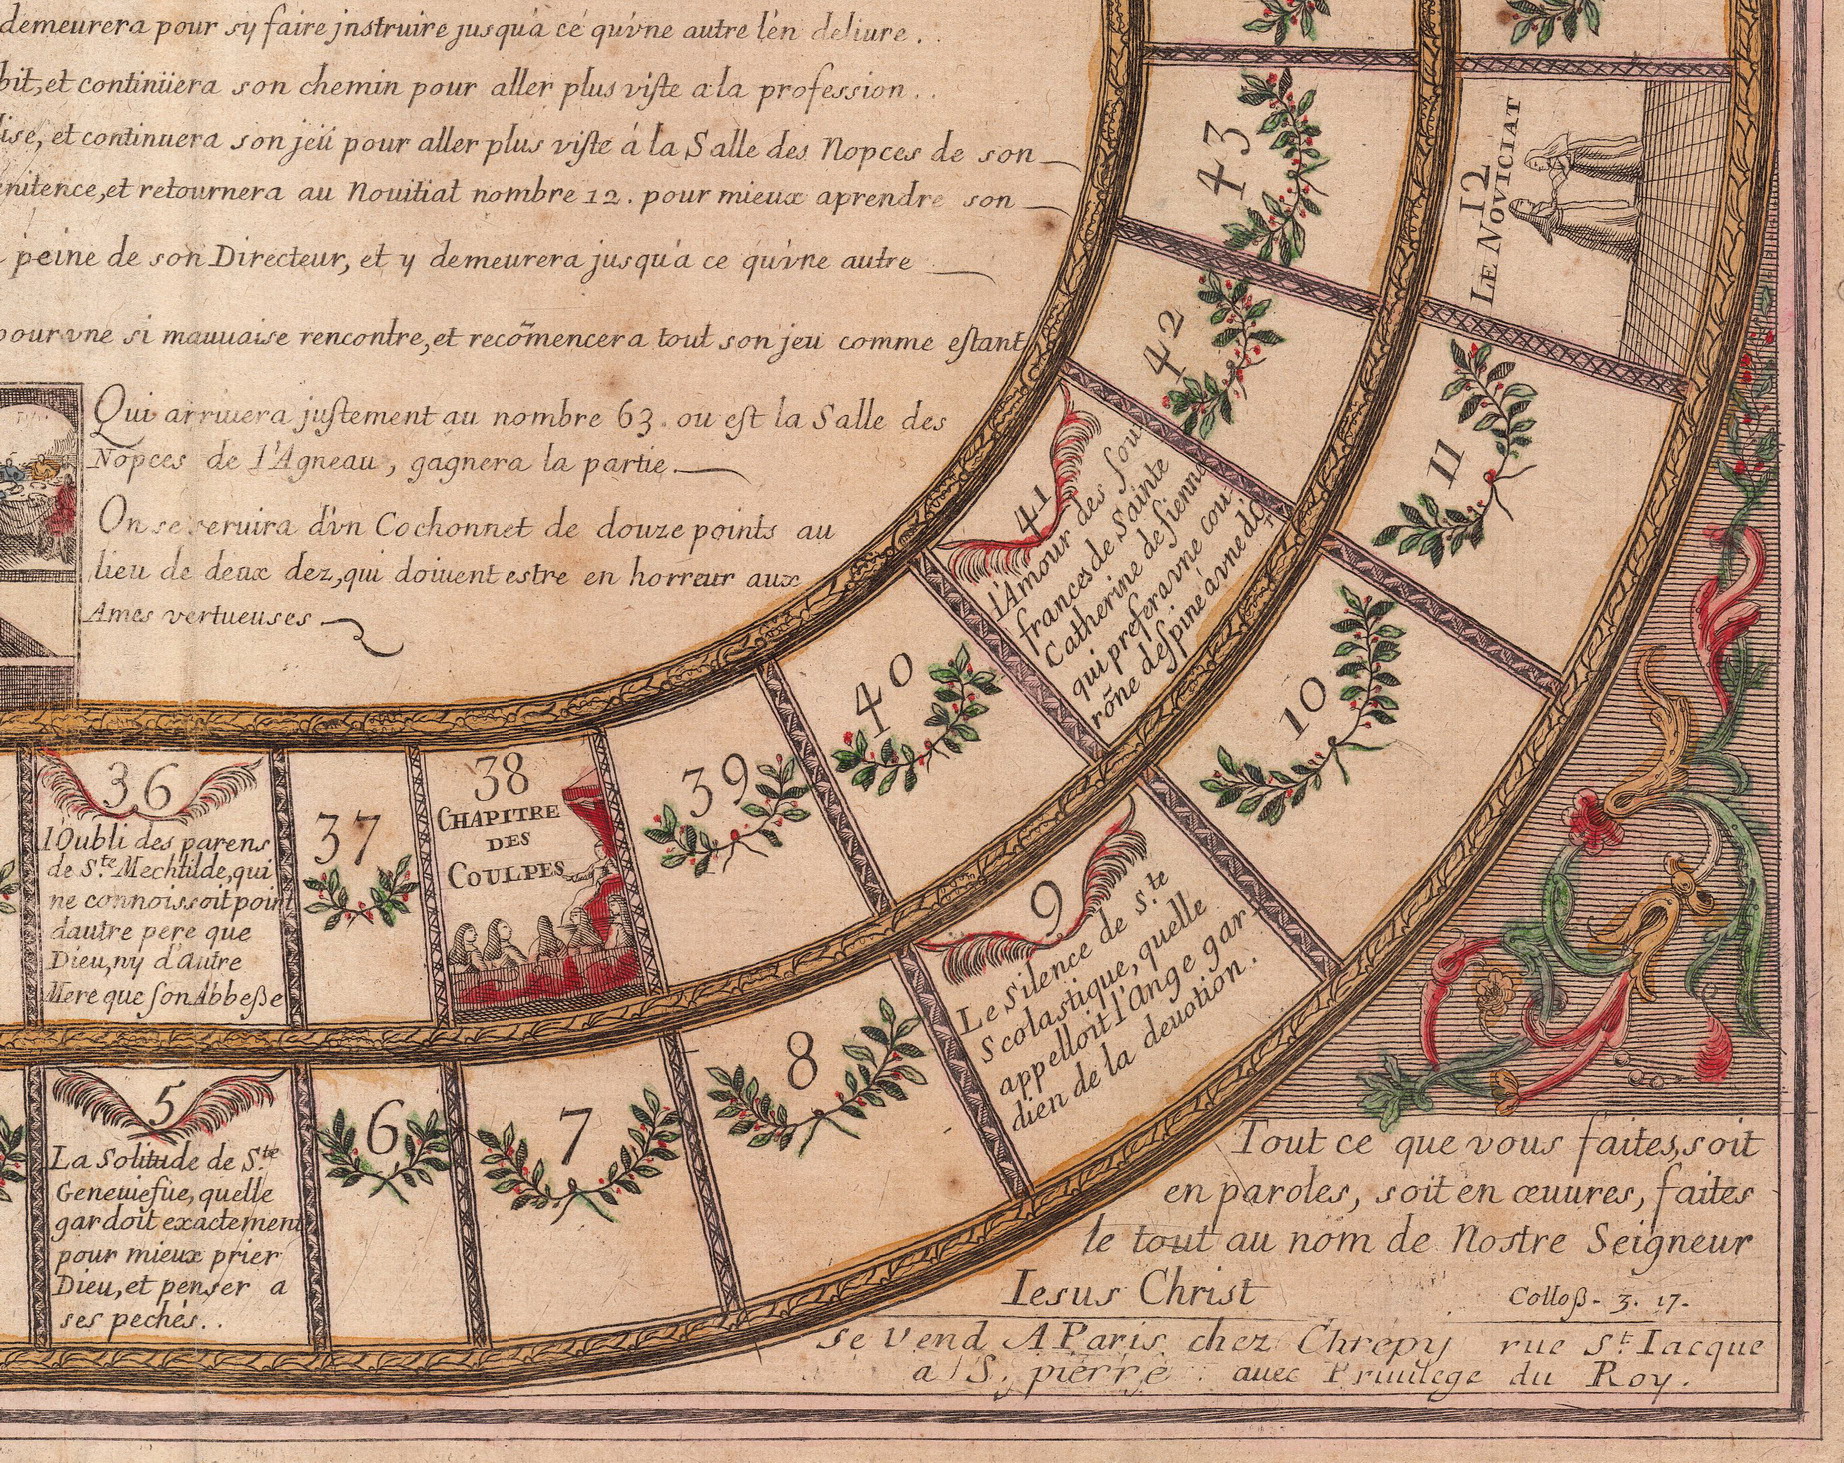 demeurera pour sy faire jnstruire jusqu'a cé qu'vne autre l'en deliure.
bit, et continüera son chemin pour aller plus viste a la profession..
lise, et continuera son jeü pour aller plus viste á la Salle des Nopces de son
enitence, et retournera au Nouitiat nombre 12. pour mieux aprendre son
peine de son Directeur, et y demeurera jusqu'a ce qu'vne autre
pour vne si mauuaise rencontre, et recõmencera tout son jeu comme estant
Qui arriuera justement au nombre 63. ou est la Salle des
Nopces de l'Agneau, gagnera la partie.
On se seruira d'vn Cochonnet de douze points au
lieu de deux dez, qui doiuent estre en horreur aux
Ames vertueuses
43
12
LE NOVICIAT
42
11
41
l'Amour des sou
frances de Sainte
Catherine de sienne
qui prefera vne cou
rõne despine á vne dor
40
10
39
38
CHAPITRE
DES
COULPES
37
36
lOubli des parens
de Ste Mechtilde, qui
ne connoissoit point
dautre pere que
Dieu, ny d'autre
Mere que son Abbeße
9
Le Silence de Ste
Scolastique, quelle
appelloit l'Ange gar
dien de la deuotion.
8
7
6
5
La Solitude de Ste
Geneuiefue, quelle
gardoit exactement
pour mieux prier
Dieu, et penser a
ses pechés..
Tout ce que vous faites, soit
en paroles, soit en œuures, faites
le tout au nom de Nostre Seigneur
Iesus Christ
Colloß. 3. 17.
se Vend A Paris chez Chrepy rue St Iacque
a S. pierre auec Priuilege du Roy.